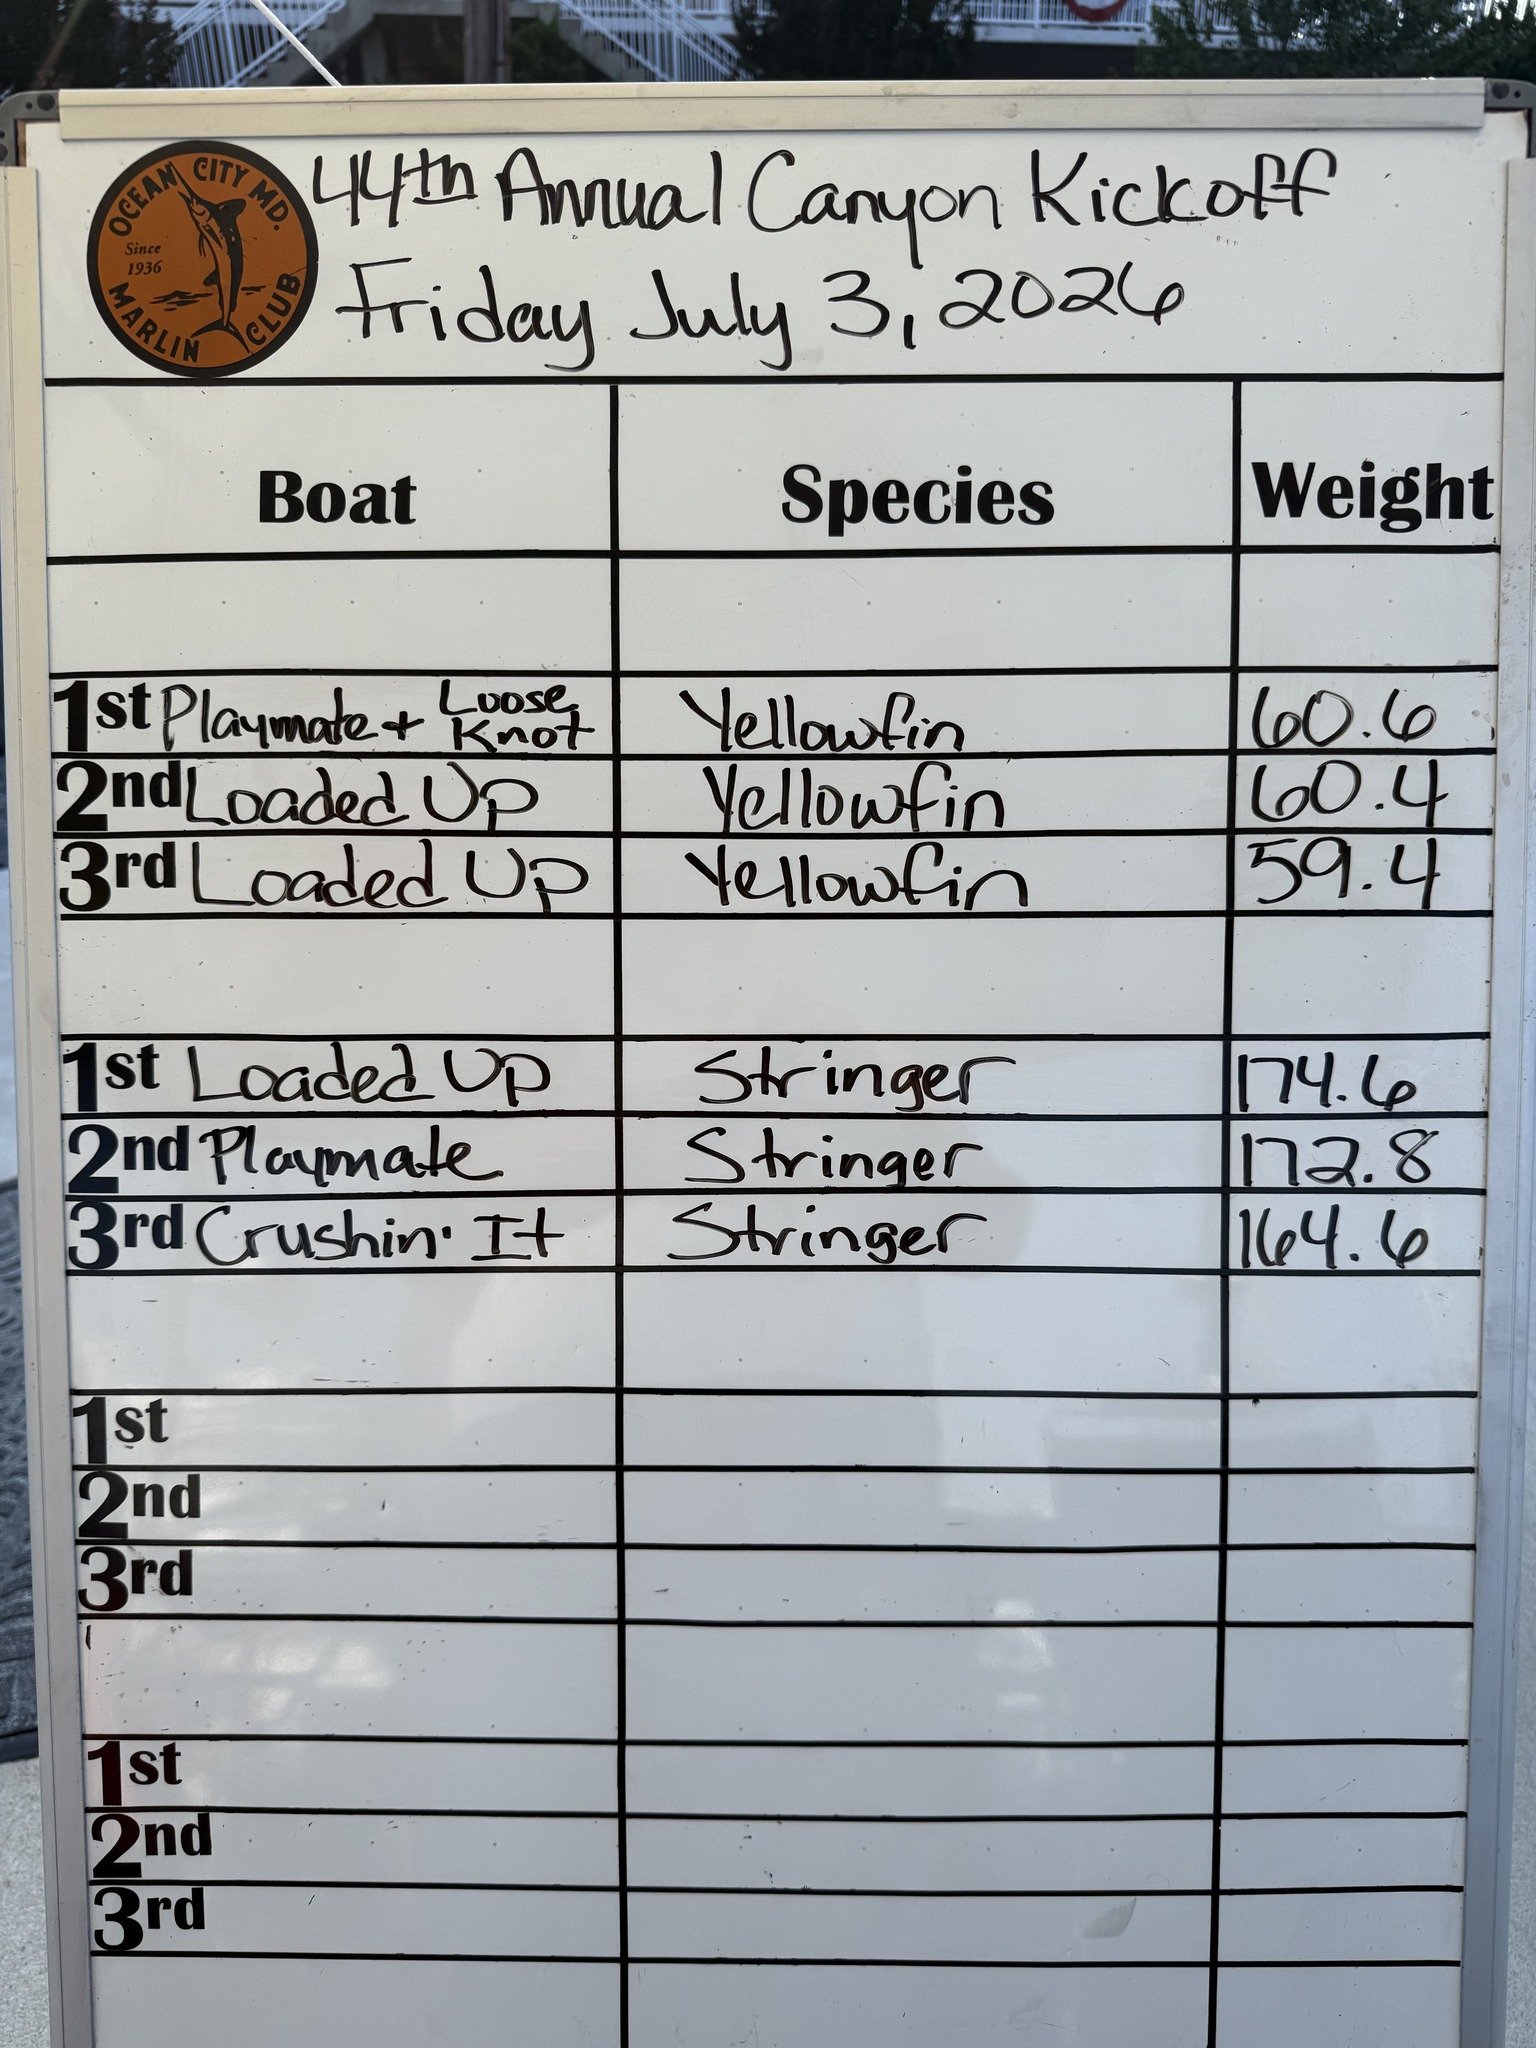 OCEAN CITY MD.
Since
1936
MARLIN CLUB
44th Annual Canyon Kickoff
Friday July 3, 2026
Boat Species Weight
1st Playmate + Loose Knot Yellowfin 60.6
2nd Loaded Up Yellowfin 60.4
3rd Loaded Up Yellowfin 59.4
1st Loaded Up Stringer 174.6
2nd Playmate Stringer 172.8
3rd Crushin' It Stringer 164.6
1st
2nd
3rd
1st
2nd
3rd